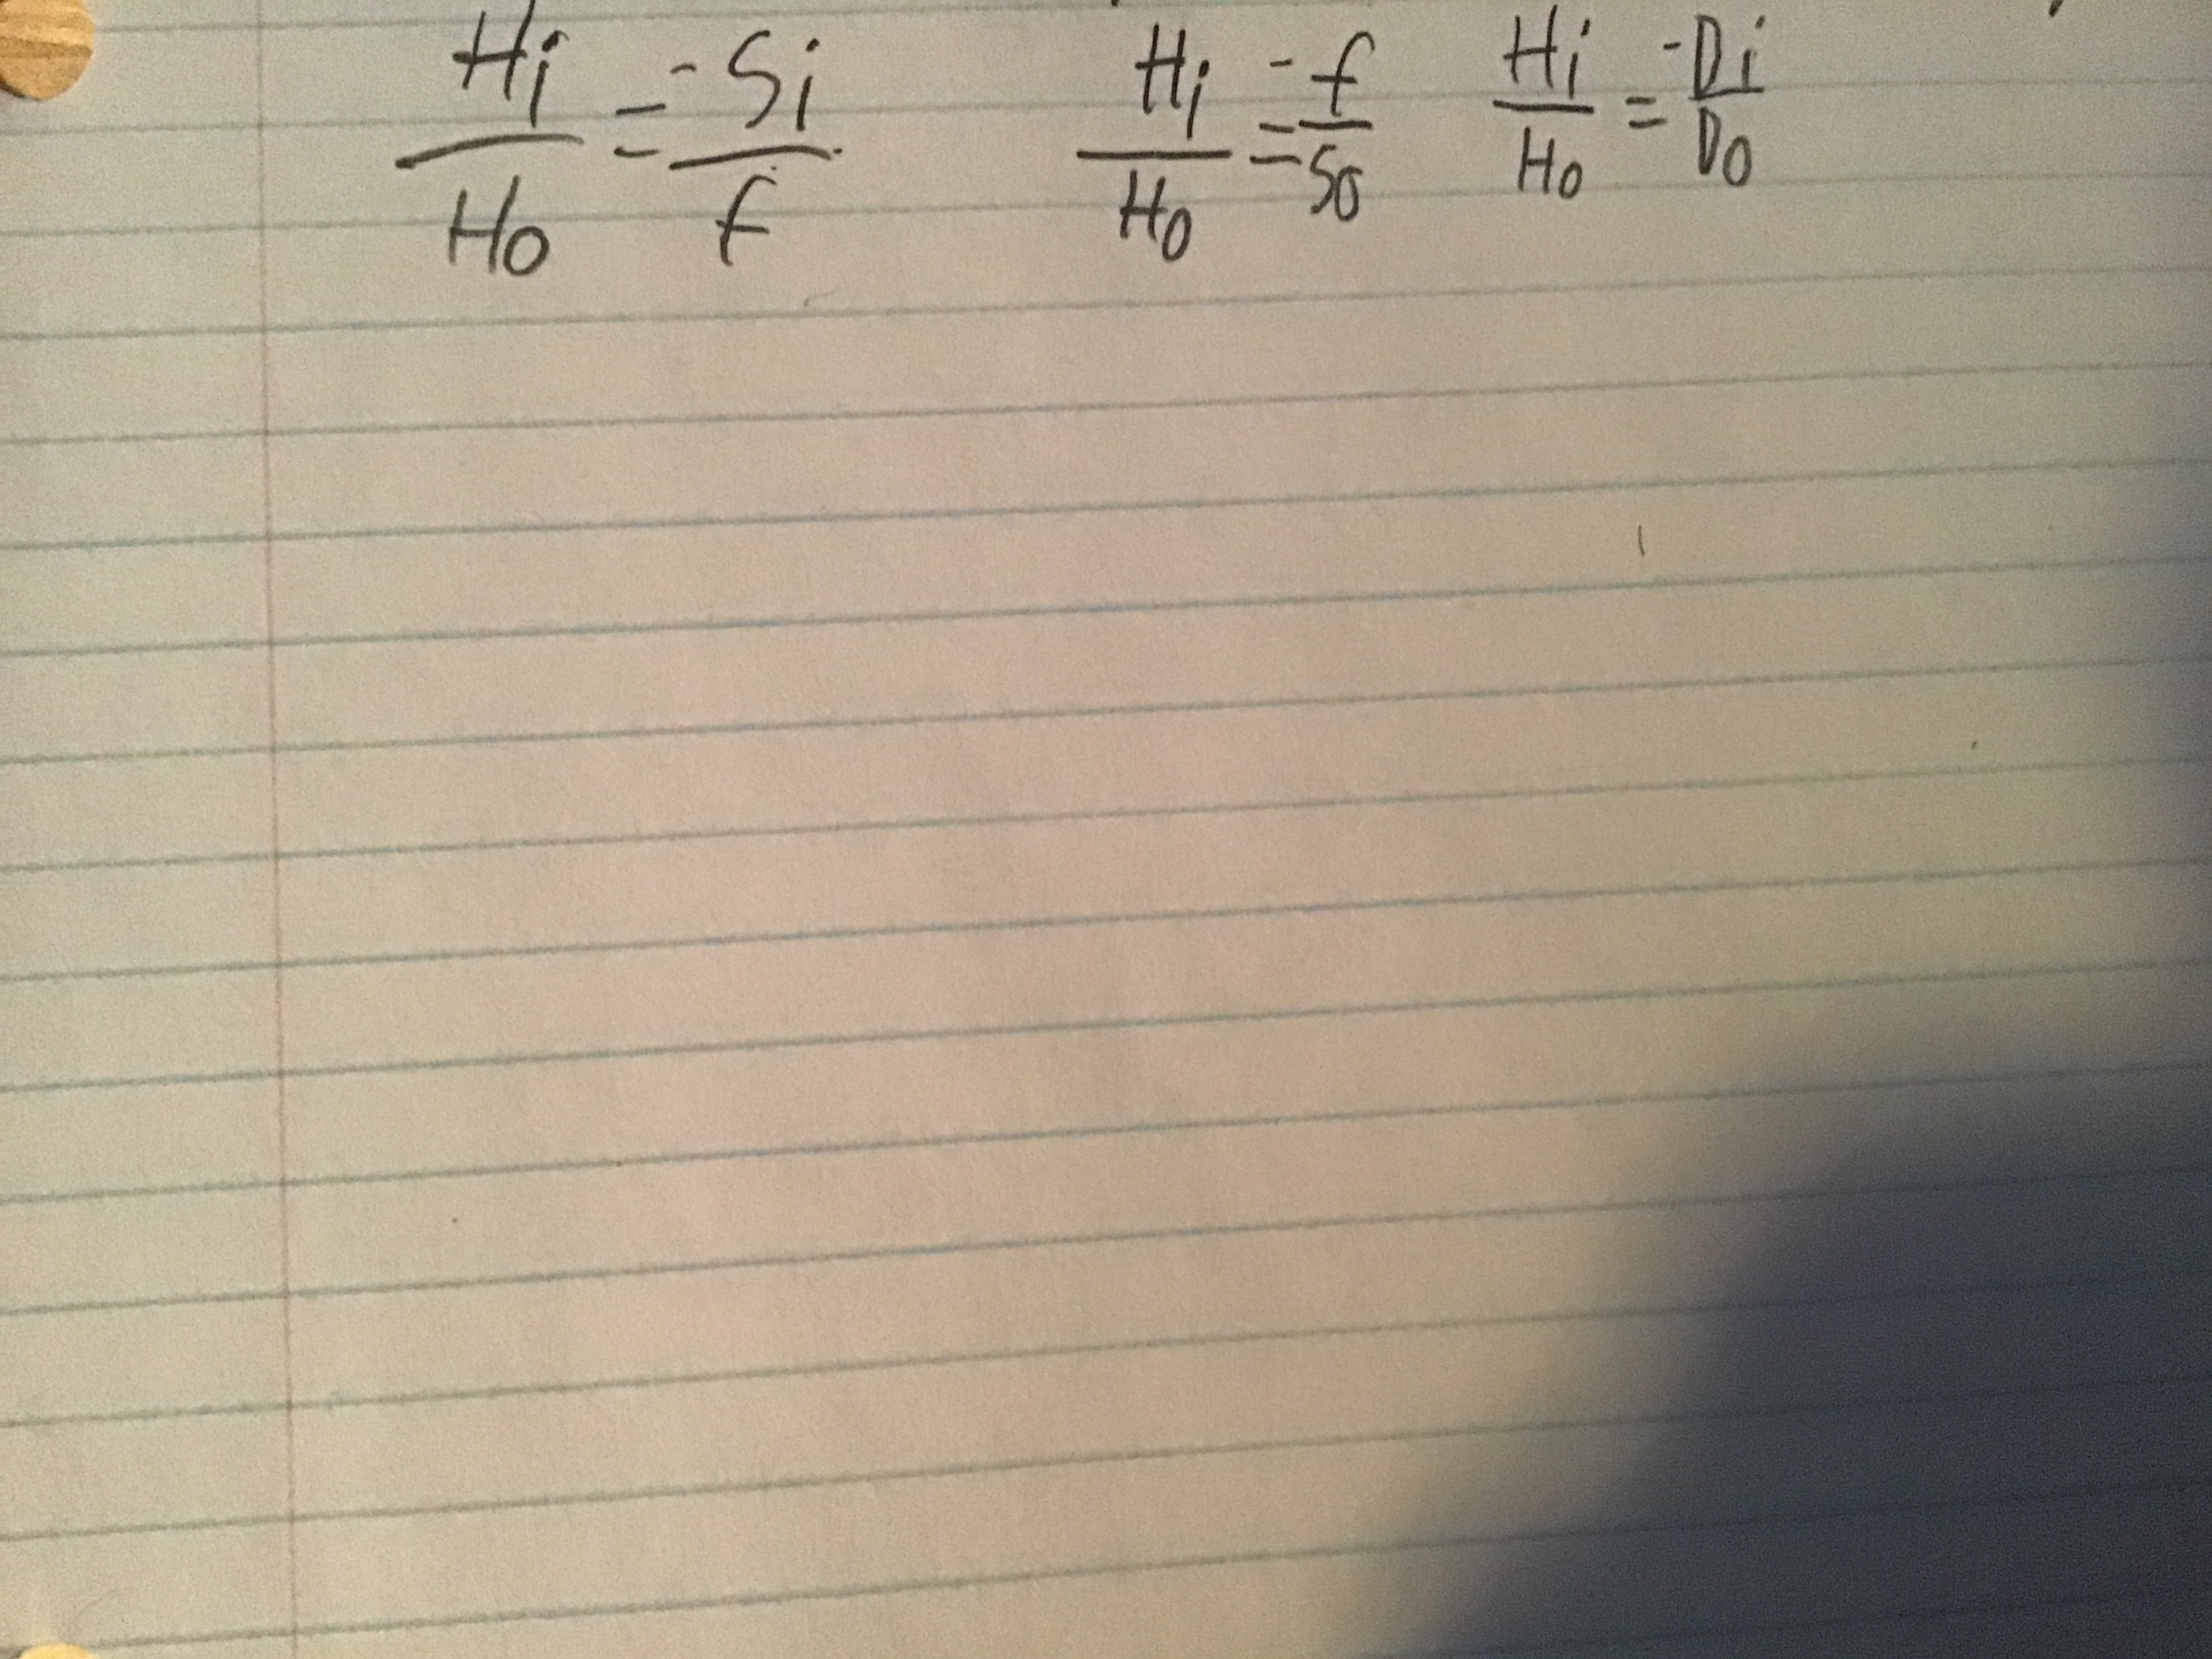 Hi/Ho = -Si/f   Hi/Ho = -f/So   Hi/Ho = -Di/Do